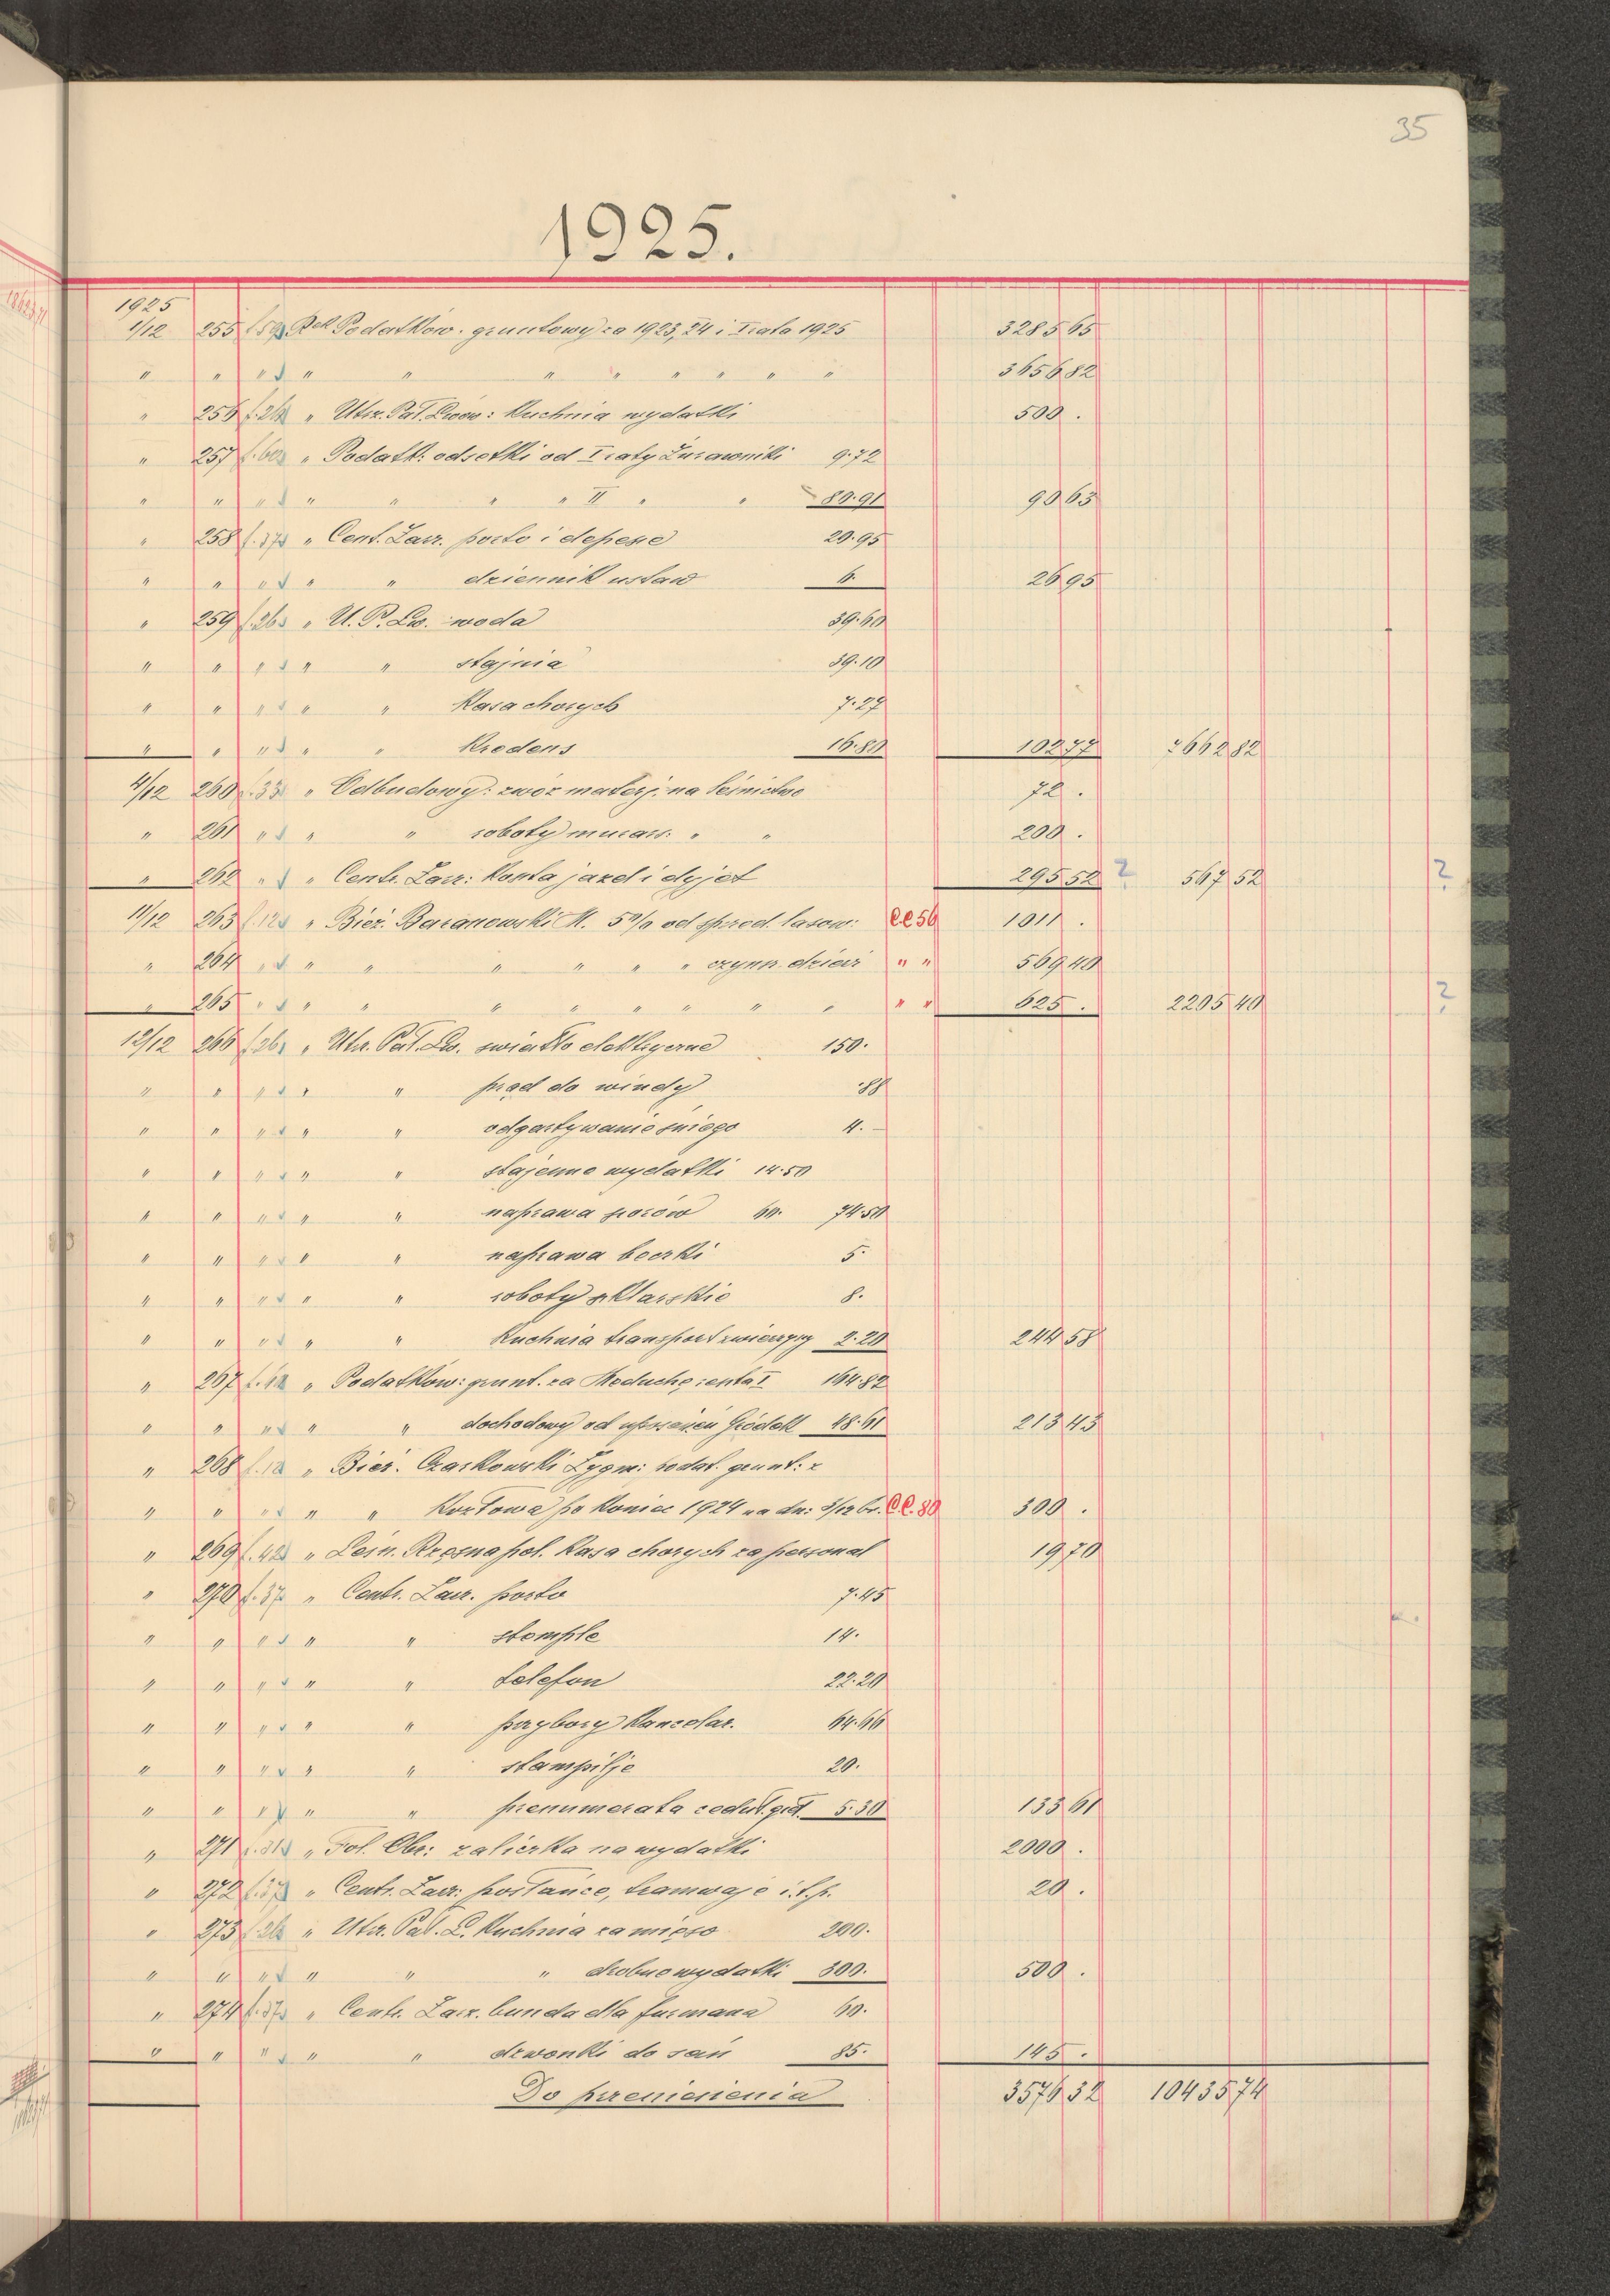 35
1925.
1925
1/12 255 f. 59 Rek Podatków: gruntowy za 1923, 24 i I rata 1925 3285 65
" " " " " " " " " " " " 3656 82
" 256 f. 26 " Utrz. Pał. Lwów: Kuchnia wydatki 500 .
" 257 f. 60 " Podatk: odsetki od I raty Żurawniki 9.72
" " " " " " " II " " 80.91 90 63
" 258 f. 37 " Cent. Zarz. porto i depesze 20.95
" " " " " dziennik ustaw 6. 26 95
" 259 f. 26 " U. P. Lw. woda 39.60
" " " " " stajnia 39.10
" " " " " Kasa chorych 7.27
" " " " " Kredens 16.80 102 77 7662 82
4/12 260 f. 33 " Odbudowy: zwóz materj. na leśnictwo 72 .
" 261 " " " roboty murars: " " 200 .
" 262 " " Centr. Zarz: Konta jazd i dyjet 295 52 ? 567 52 ?
11/12 263 f. 12 " Bież. Baranowski M. 5% od sprzed. lasow: C.C 56 1011 .
" 264 " " " " " " " czynn. dzierż " " 569 40
" 265 " " " " " " " " " " " 625 . 2205 40 ?
12/12 266 f. 26 " Utrz. Pał. Lw. światło elektryczne 150.
" " " " " prąd do windy .88
" " " " " odgartywanie śniegu 4.—
" " " " " stajenne wydatki 14.50
" " " " " naprawa 60. 74.50
" " " " " naprawa beczki 5.
" " " " " roboty szklarskie 8.
" " " " " Kuchnia transport zwierzyny 2.20 244 58
" 267 f. " Podatków: grunt. za Meduchę renta I 164.82
" " " " " dochodowy od Gródek 48.61 213 43
" 268 f. 12 " Bież. Czarkowski Zygm: podat. grunt: z
" " " " " Kozłowa po koniec 1924 na dn: 3/12 br. C.C. 80 300 .
" 269 f. 42 " Leśn. Rzęsna pol. Kasa chorych za personal 19 70
" 270 f. 37 " Centr. Zarz. porto 7.45
" " " " " stemple 14.
" " " " " telefon 22.20
" " " " " przybory kancelar. 64.66
" " " " " stampilje 20.
" " " " " prenumerata 5.30 133 61
" 271 f. 31 " Fol. Obr: zaliczka na wydatki 2000 .
" 272 f. 37 " Centr. Zarz: posłańce, tramwaje i.t.p. 20 .
" 273 f. 26 " Utrz. Pał. L. Kuchnia za mięso 200.
" " " " " " drobne wydatki 300. 500 .
" 274 f. 37 " Centr. Zarz. bunda dla furmana 60.
" " " " " dzwonki do sań 85. 145 .
Do przeniesienia 3576 32 10435 74